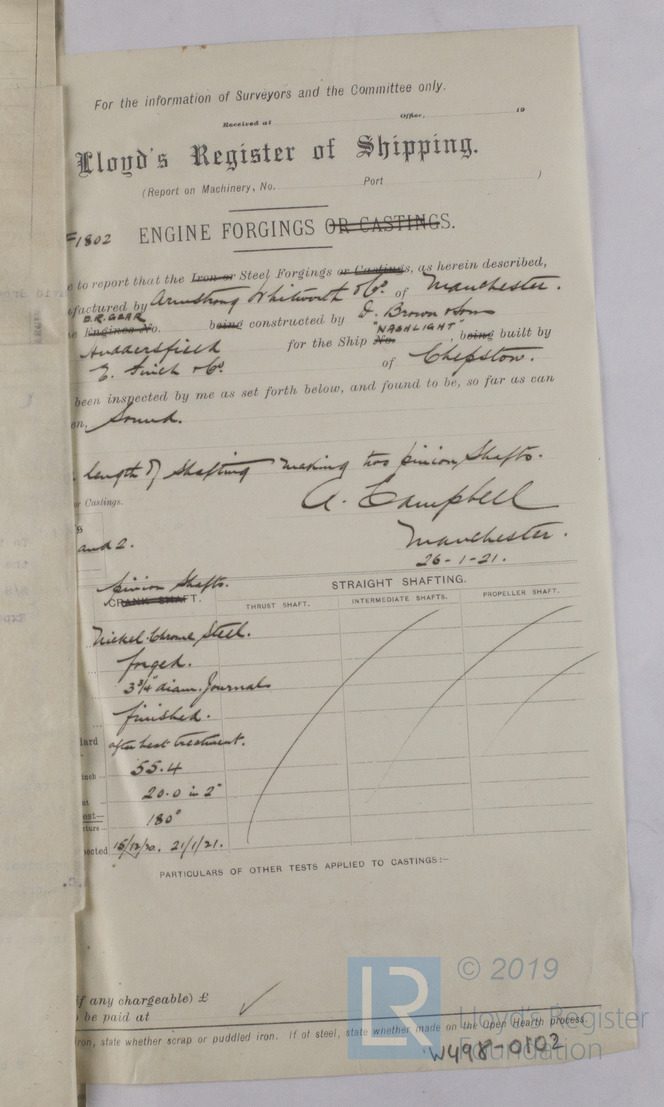 For the information of Surveyors and the Committee only.
Received at Office, 19
Lloyd's Register of Shipping.
(Report on Machinery, No. Port )
1802 ENGINE FORGINGS OR CASTINGS.
e to report that the Iron or Steel Forgings or Castings, as herein described,
factured by Armstrong Whitworth & Co. of Manchester.
D.R. GEAR
Engines No. being constructed by D. Brown & Sons
Huddersfield for the Ship No. "NASHLIGHT", being built by
E. Finch & Co. of Chepstow.
been inspected by me as set forth below, and found to be, so far as can
en, Sound.
length of Shafting making two pinion Shafts.
or Castings. A. Campbell
and 2. Manchester.
26-1-21.
pinion Shafts.
CRANK SHAFT. STRAIGHT SHAFTING.
THRUST SHAFT. INTERMEDIATE SHAFTS. PROPELLER SHAFT.
Nickel Chrome Steel.
forged.
3 3/4" diam. Journals
finished.
after heat treatment.
55.4
20.0 in 2"
180°
ected 15/12/20. 21/1/21.
PARTICULARS OF OTHER TESTS APPLIED TO CASTINGS:—
if any chargeable) £
be paid at
iron, state whether scrap or puddled iron. If of steel, state whether made on the Open Hearth process.
W498-0102
LR
© 2019
Lloyd's Register
Foundation